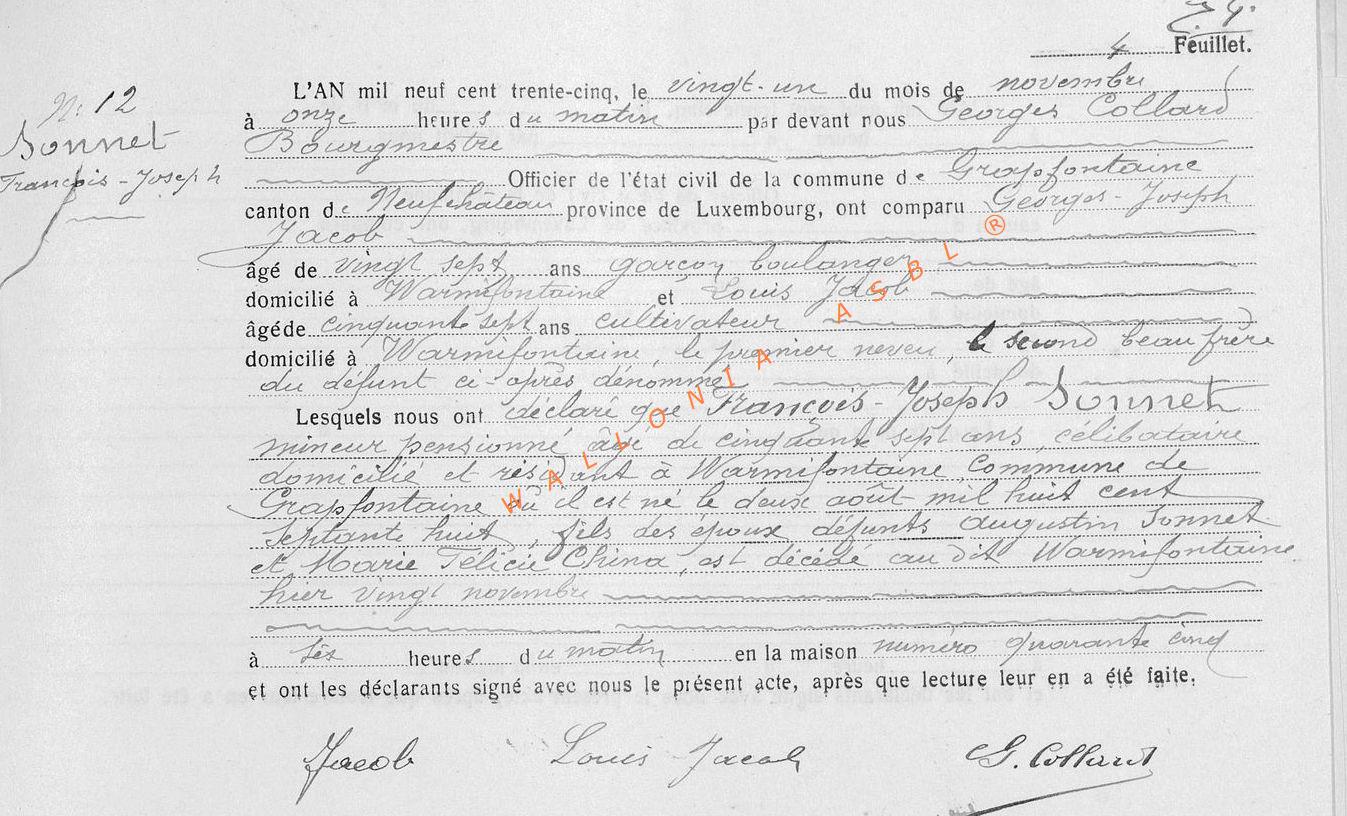 4 Feuillet.
N: 12
Sonnet
François-Joseph
L'AN mil neuf cent trente-cinq, le vingt-un du mois de novembre
à onze heures du matin par devant nous Georges Collard
Bourgmestre
Officier de l'état civil de la commune de Grapfontaine
canton de Neufchâteau province de Luxembourg, ont comparu Georges-Joseph
Jacob
âgé de vingt sept ans garçon boulanger
domicilié à Warmifontaine et Louis Jacob
âgé de cinquante sept ans cultivateur
domicilié à Warmifontaine, le premier neveu, le second beau frère
du défunt ci-après dénommé
Lesquels nous ont déclaré que François-Joseph Sonnet
mineur pensionné âgé de cinquante sept ans, célibataire
domicilié et résidant à Warmifontaine Commune de
Grapfontaine où il est né le deux août mil huit cent
septante huit, fils des époux défunts Augustin Sonnet
et Marie Félicie China, est décédé au dit Warmifontaine
hier vingt novembre
à heures du matin en la maison numéro quarante cinq
et ont les déclarants signé avec nous le présent acte, après que lecture leur en a été faite.
Jacob Louis Jacob G. Collard
WALLONIA ASBL ®